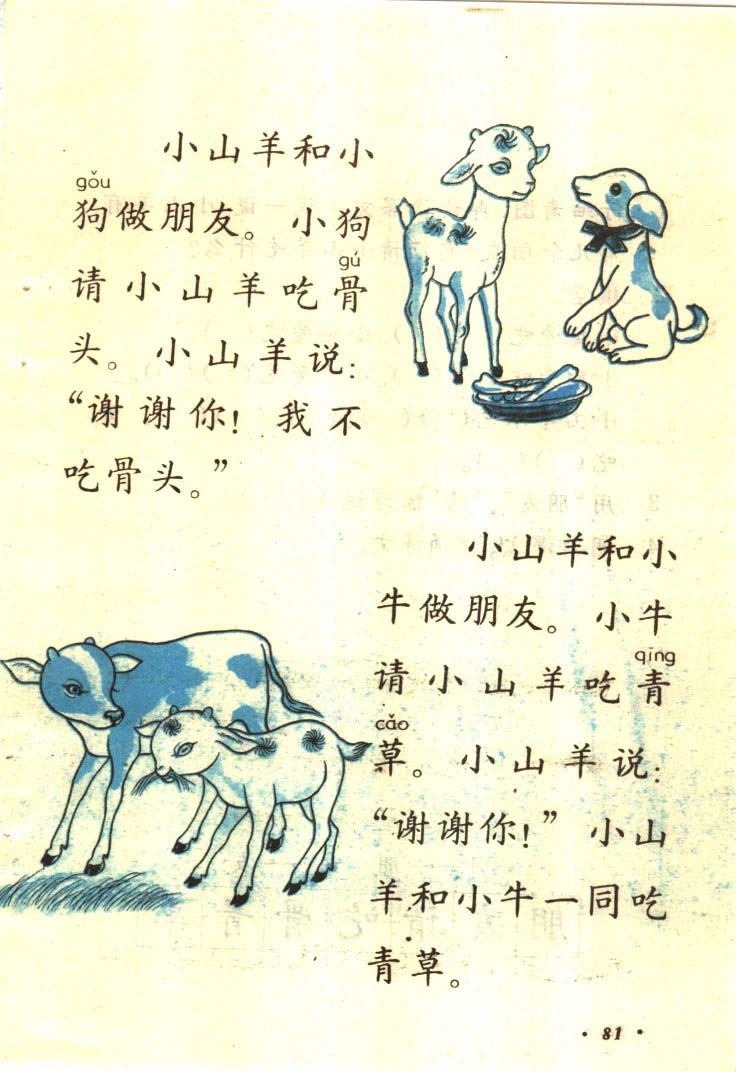 小山羊和小
gǒu
狗做朋友。小狗
gú
请小山羊吃骨
头。小山羊说：
“谢谢你！我不
吃骨头。”
小山羊和小
牛做朋友。小牛
qīng
请小山羊吃青
cǎo
草。小山羊说：
“谢谢你！”小山
羊和小牛一同吃
青草。
·81·